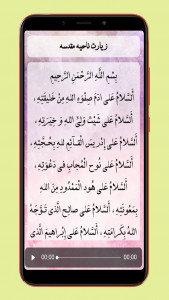 زیارت ناحیه مقدسه
بِسْمِ اللَّهِ الرَّحْمَنِ الرَّحِيمِ
أَلسَّلامُ عَلى ادَمَ صِفْوَةِ اللهِ مِنْ خَليقَتِهِ ،
أَلسَّلامُ عَلى شَيْث وَلِىِّ اللهِ وَ خِيَرَتِهِ ،
أَلسَّلامُ عَلى إِدْريسَ الْقــآئِمِ للهِِ بِحُجَّتِهِ ،
أَلسَّلامُ عَلى نُوح الْمُجابِ في دَعْوَتِهِ ،
أَلسَّلامُ عَلى هُود الْمَمْدُودِ مِنَ اللهِ
بِمَعُونَتِهِ ، أَلسَّلامُ عَلى صالِـح الَّذي تَـوَّجَهُ
اللهُ بِكَرامَتِهِ ، أَلسَّلامُ عَلى إِبْراهيمَ الَّذي
00:00
00:00